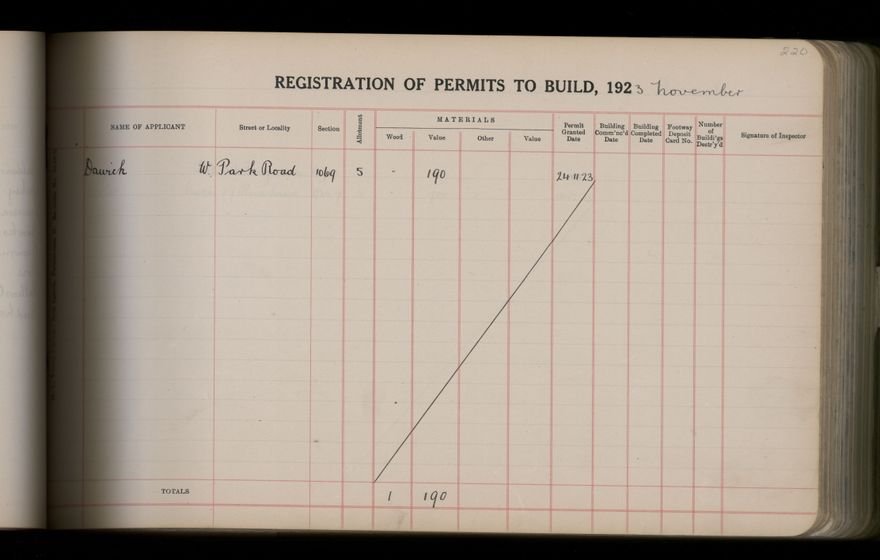 220
REGISTRATION OF PERMITS TO BUILD, 1923 November
NAME OF APPLICANT Street or Locality Section Allotment MATERIALS Wood Value Other Value Permit Granted Date Building Comm'nc'd Date Building Completed Date Footway Deposit Card No. Number of Buildi'gs Destr'y'd Signature of Inspector
Dawick W. Park Road 1069 5 - 190 24.11.23
TOTALS 1 190